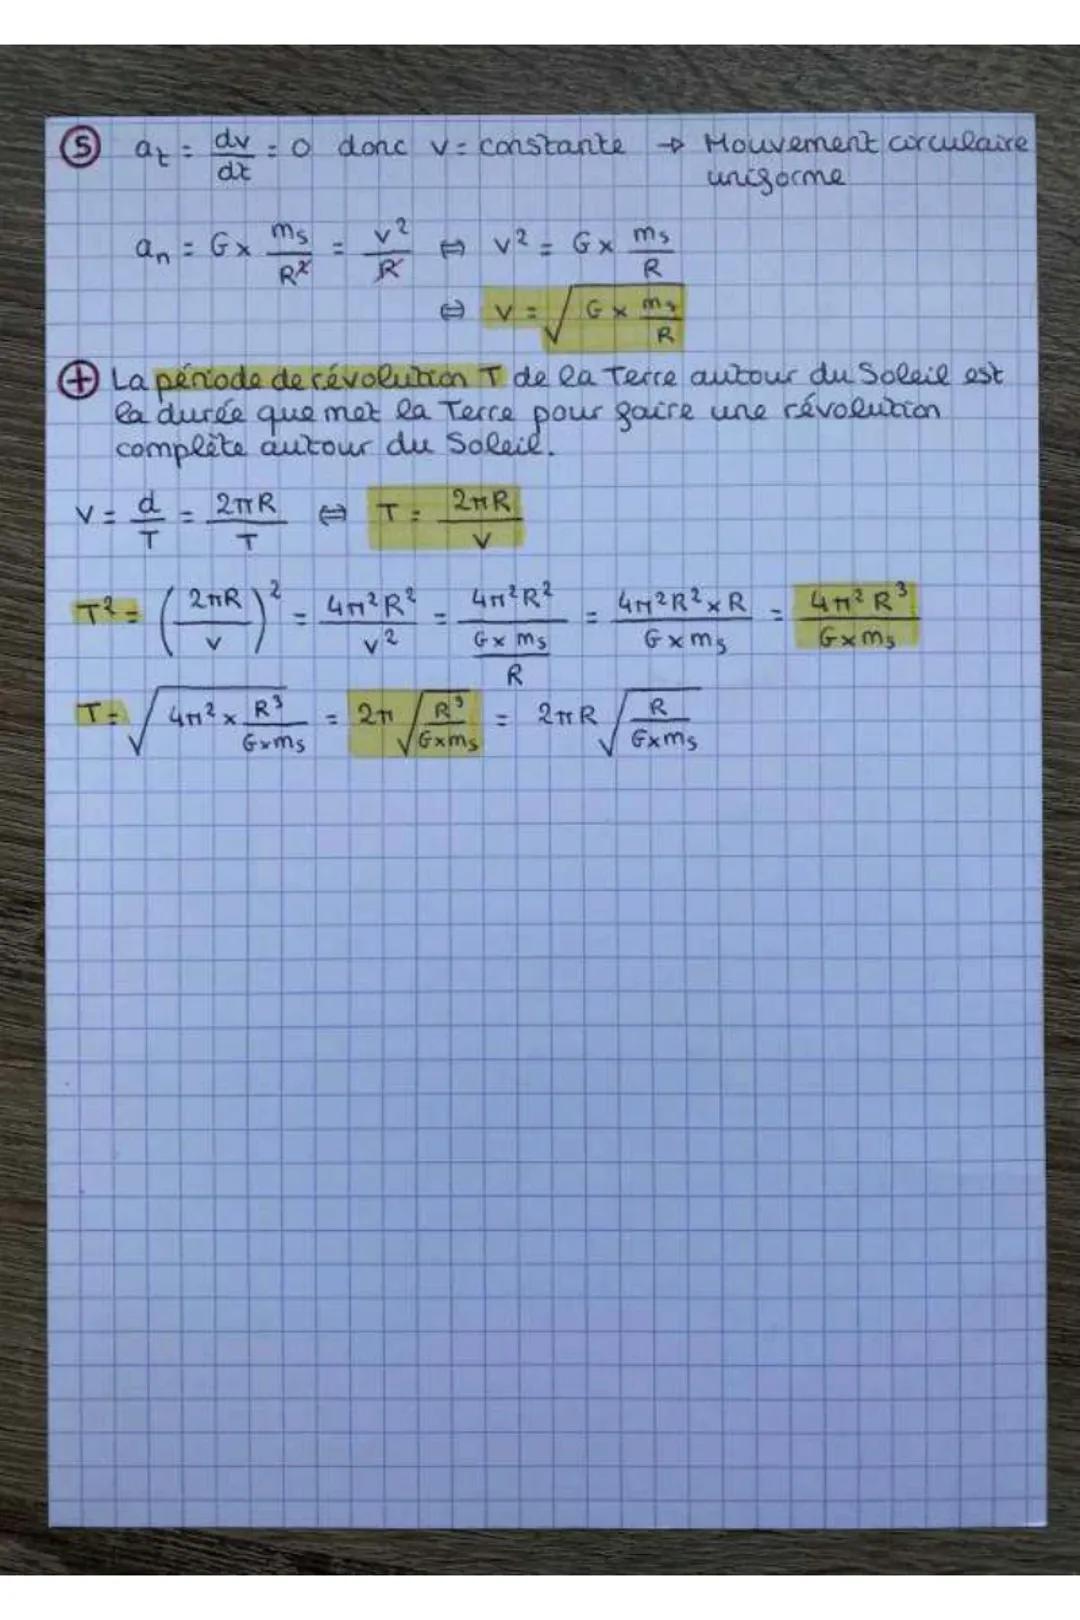 ⑤ aₜ = dv/dt = 0 donc v = constante → Mouvement circulaire
uniforme
aₙ = G × mₛ/R² = v²/R ⇔ v² = G × mₛ/R
⇔ v = √(G × mₛ/R)
⊕ La période de révolution T de la Terre autour du Soleil est
la durée que met la Terre pour faire une révolution
complète autour du Soleil.
v = d/T = 2πR/T ⇔ T = 2πR/v
T² = (2πR/v)² = 4π²R²/v² = 4π²R²/(G × mₛ/R) = 4π²R² × R/(G × mₛ) = 4π²R³/(G × mₛ)
T = √(4π² × R³/(G × mₛ)) = 2π √(R³/(G × mₛ)) = 2πR √(R/(G × mₛ))